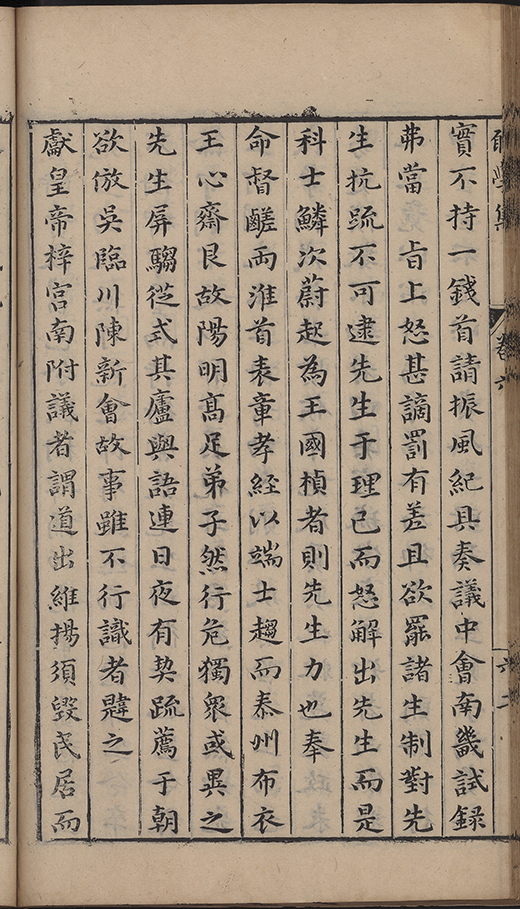 卷六
六二
實不持一錢首請振風紀具奏議中會南畿試録
弗當 旨上怒甚謫罰有差且欲罷諸生制對先
生抗疏不可逮先生于理已而怒解出先生而是
科士鱗次蔚起為王國楨者則先生力也奉
命督鹺兩淮首表章孝經以端士趨而泰州布衣
王心齋艮故陽明髙足弟子然行危獨衆或異之
先生屏騶從式其廬與語連日夜有契疏薦于朝
欲倣吳臨川陳新會故事雖不行識者韙之
獻皇帝梓宮南附議者謂道出維揚須毀民居而